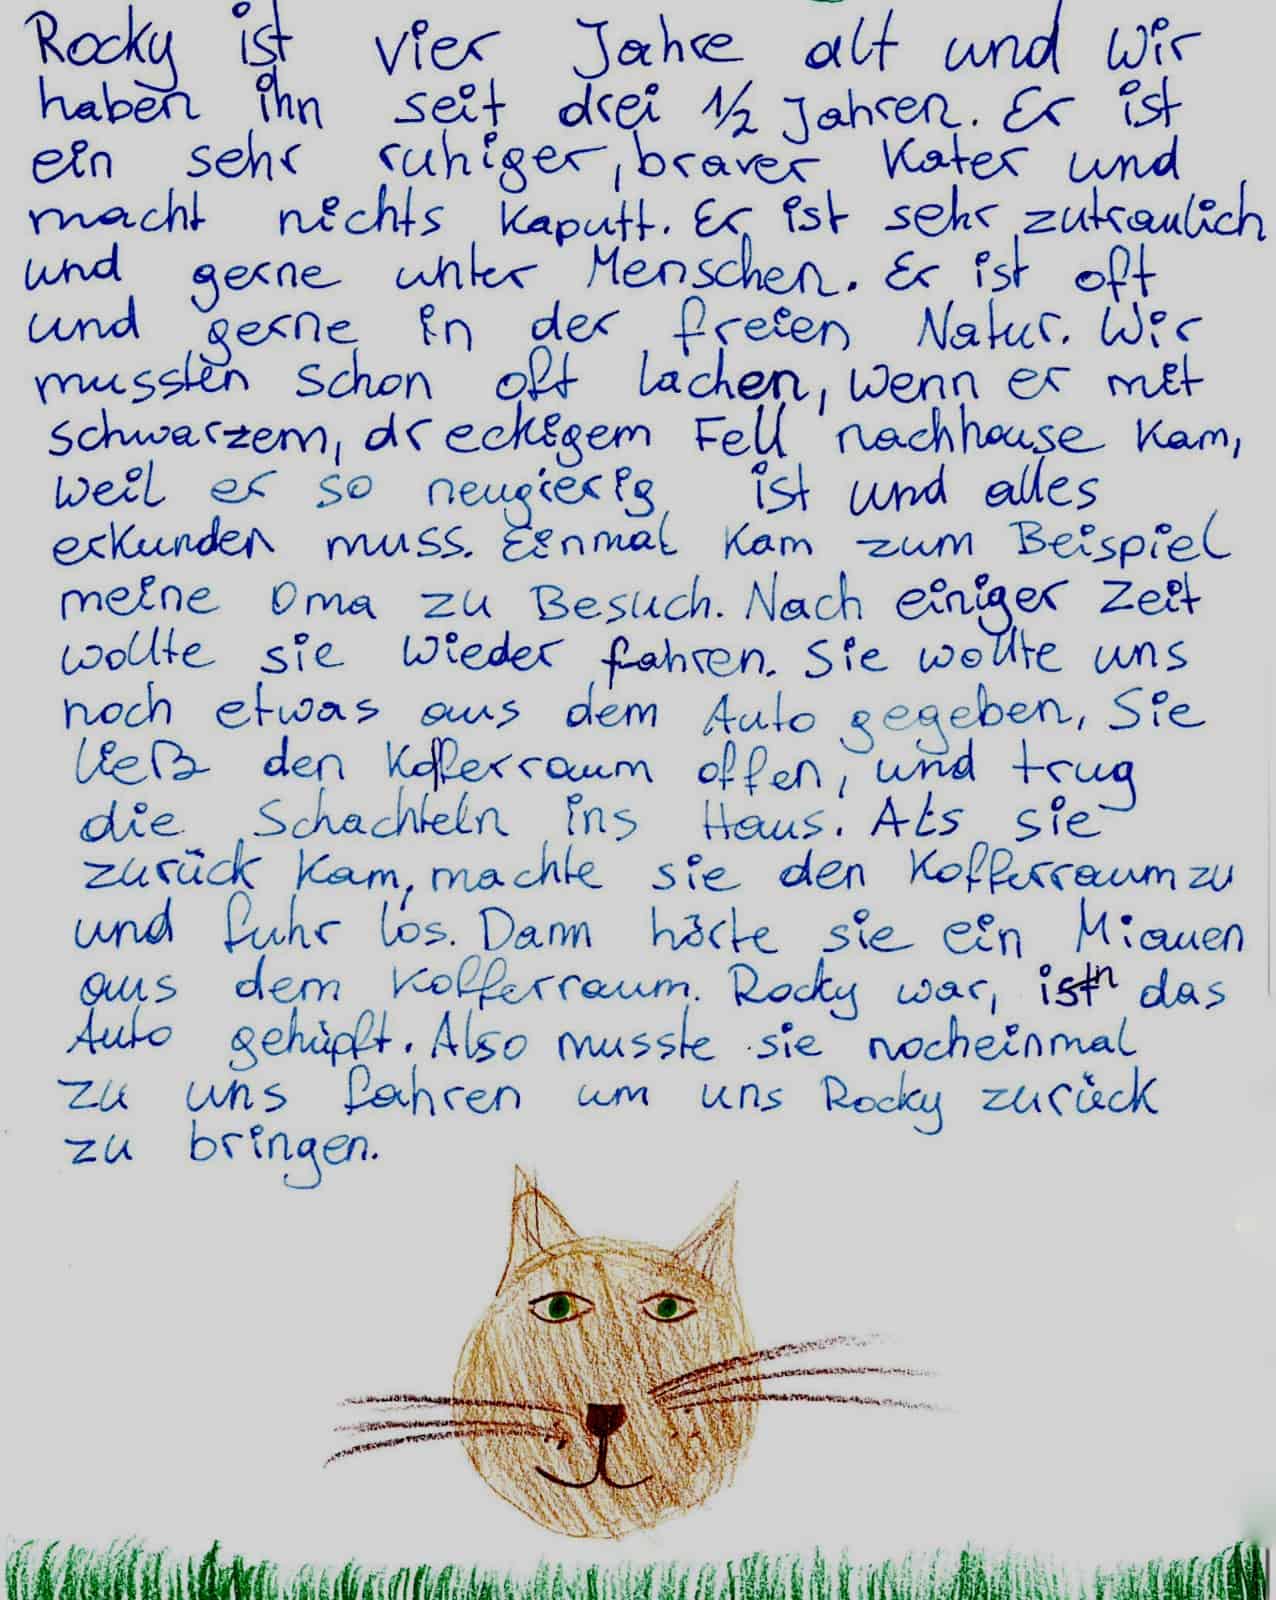 Rocky ist vier Jahre alt und wir
haben ihn seit drei 1/2 Jahren. Er ist
ein sehr ruhiger, braver Kater und
macht nichts kaputt. Er ist sehr zutraulich
und gerne unter Menschen. Er ist oft
und gerne in der freien Natur. Wir
mussten schon oft lachen, wenn er mit
schwarzem, dreckigem Fell nachhause kam,
weil er so neugierig ist und alles
erkunden muss. Einmal kam zum Beispiel
meine Oma zu Besuch. Nach einiger Zeit
wollte sie wieder fahren. Sie wollte uns
noch etwas aus dem Auto gegeben, Sie
ließ den Kofferraum offen, und trug
die Schachteln ins Haus. Als sie
zurück kam, machte sie den Kofferraum zu
und fuhr los. Dann hörte sie ein Miauen
aus dem Kofferraum. Rocky war, in das
Auto gehüpft. Also musste sie nocheinmal
zu uns fahren um uns Rocky zurück
zu bringen.